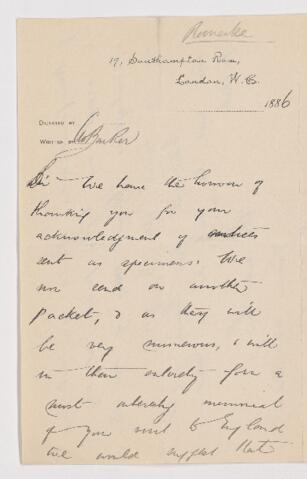 Romeike
19, Southampton Row,
London, W. C.
1886
Dictated by
Written by
Sir We have the honour of
thanking you for your
acknowledgment of notices
sent as specimens. We
now send on another
packet, & as they will
be very numerous, & will
in their entirety form a
most interesting memorial
of your visit to England
we would suggest that